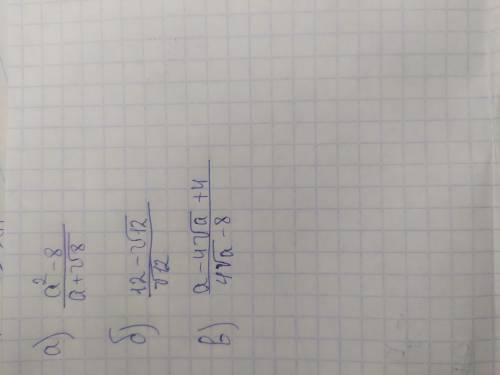 а) (a² - 8)/(a + √8)
б) (12 - √12)/√12
в) (a - 4√a + 4)/(4√a - 8)